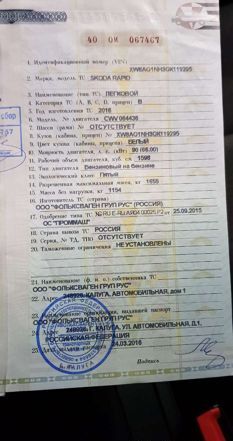 40 ОМ 067467
1. Идентификационный номер (VIN) XW8AG1NH3GK119295
2. Марка, модель ТС SKODA RAPID
3. Наименование (тип ТС) ЛЕГКОВОЙ
4. Категория ТС (А, В, С, D, прицеп) В
5. Год изготовления ТС 2016
6. Модель, № двигателя CWV 084436
7. Шасси (рама) № ОТСУТСТВУЕТ
8. Кузов (кабина, прицеп) № XW8AG1NH3GK119295
9. Цвет кузова (кабины, прицепа) БЕЛЫЙ
10. Мощность двигателя, л. с. (кВт) 90 (66.00)
11. Рабочий объем двигателя, куб. см 1598
12. Тип двигателя Бензиновый на бензине
13. Экологический класс Пятый
14. Разрешенная максимальная масса, кг 1655
15. Масса без нагрузки, кг 1154
16. Изготовитель ТС (страна)
ООО "ФОЛЬКСВАГЕН ГРУП РУС" (РОССИЯ)
17. Одобрение типа ТС № 25.09.2015
ОС "ПРОММАШ"
18. Страна вывоза ТС РОССИЯ
19. Серия, № ТД, ТПО ОТСУТСТВУЕТ
20. Таможенные ограничения НЕ УСТАНОВЛЕНЫ
21. Наименование (ф. и. о.) собственника ТС
ООО "ФОЛЬКСВАГЕН ГРУП РУС"
22. Адрес 248926, КАЛУГА, АВТОМОБИЛЬНАЯ, дом 1
23. Наименование организации, выдавшей паспорт
ООО "ФОЛЬКСВАГЕН ГРУП РУС"
24. Адрес 248926, Г. КАЛУГА, УЛ. АВТОМОБИЛЬНАЯ, Д.1,
РОССИЙСКАЯ ФЕДЕРАЦИЯ
25. Дата выдачи паспорта 24.03.2016
Подпись
г. КАЛУГА